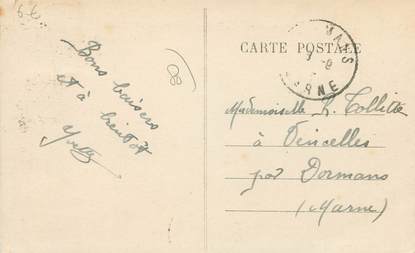 Bons baisers
et à
bientôt
Yvette
CARTE POSTALE
MANS
MARNE
Mademoiselle L. Collitte
à Vincelles
par Dormans
(Marne)